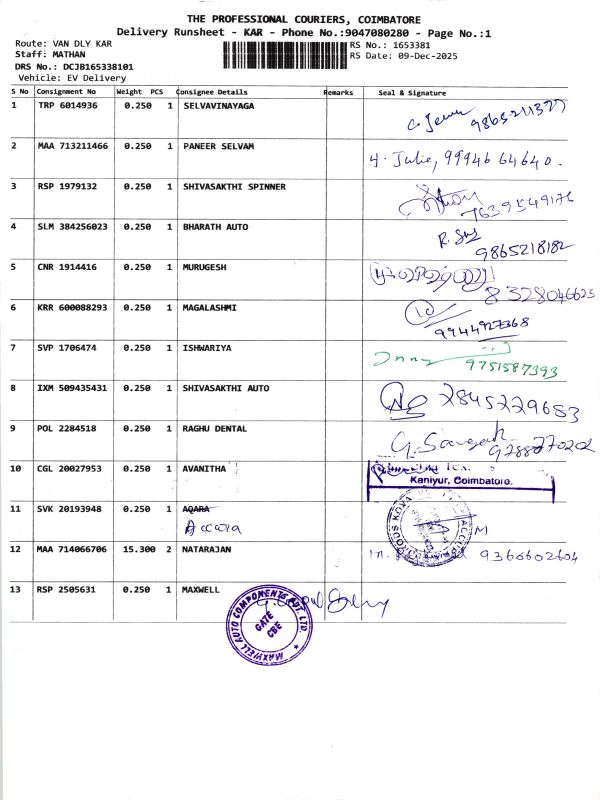 THE PROFESSIONAL COURIERS, COIMBATORE
Delivery Runsheet - KAR - Phone No.:9047080280 - Page No.:1
Route: VAN DLY KAR
Staff: MATHAN
DRS No.: DCJB165338101
Vehicle: EV Delivery
RS No.: 1653381
RS Date: 09-Dec-2025
S No Consignment No Weight PCS Consignee Details Remarks Seal & Signature
1 TRP 6014936 0.250 1 SELVAVINAYAGA 9865211377
2 MAA 713211466 0.250 1 PANEER SELVAM Julie, 99946 64640.
3 RSP 1979132 0.250 1 SHIVASAKTHI SPINNER 7639549176
4 SLM 384256023 0.250 1 BHARATH AUTO 9865218182
5 CNR 1914416 0.250 1 MURUGESH 8328046625
6 KRR 600088293 0.250 1 MAGALASHMI 9944927368
7 SVP 1706474 0.250 1 ISHWARIYA 9751587393
8 IXM 509435431 0.250 1 SHIVASAKTHI AUTO 2845229683
9 POL 2284518 0.250 1 RAGHU DENTAL 9788770202
10 CGL 20027953 0.250 1 AVANITHA Kaniyur, Coimbatore.
11 SVK 20193948 0.250 1 AQARA
Accora
12 MAA 714066706 15.300 2 NATARAJAN 9366602604
13 RSP 2505631 0.250 1 MAXWELL
MAXWELL AUTO COMPONENTS PVT. LTD.
GATE
CBE